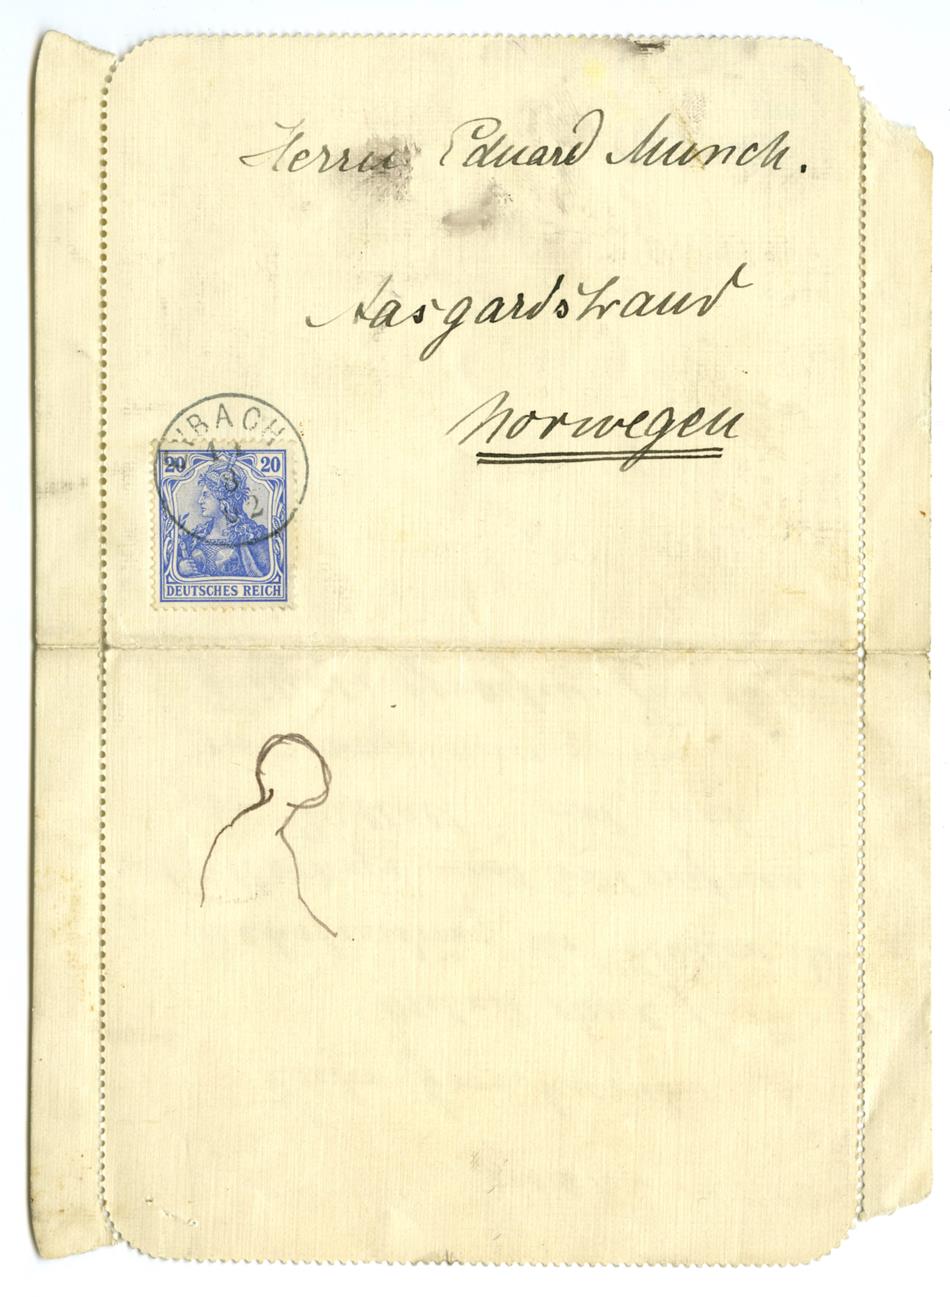 Herrn Eduard Munch.
Aasgardstrand
Norwegen
BACH
20 20
DEUTSCHES REICH